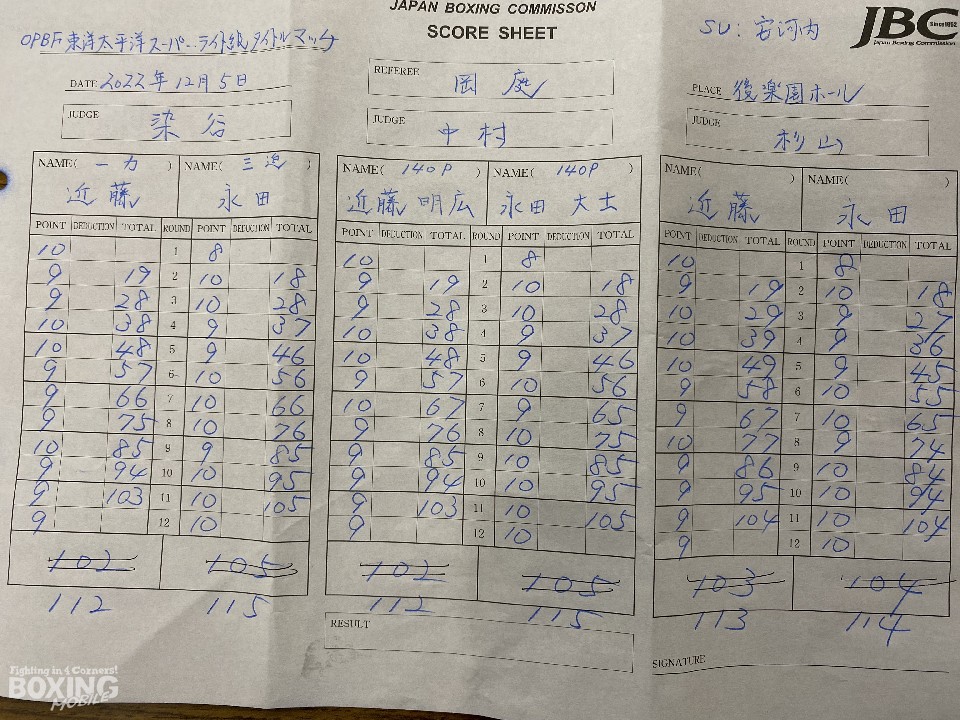 JAPAN BOXING COMMISSON
SCORE SHEET
JBC Since1952
Japan Boxing Commission
SU: 安河内
OPBF 東洋太平洋スーパーライト級タイトルマッチ
DATE 2022年12月5日
REFEREE 岡庭
PLACE 後楽園ホール
JUDGE 染谷
JUDGE 中村
JUDGE 杉山
NAME( 一力 ) NAME( 三迫 ) NAME( 140P ) NAME( 140P ) NAME( ) NAME( )
近藤 永田 近藤 明広 永田 大士 近藤 永田
POINT DEDUCTION TOTAL ROUND POINT DEDUCTION TOTAL POINT DEDUCTION TOTAL ROUND POINT DEDUCTION TOTAL POINT DEDUCTION TOTAL ROUND POINT DEDUCTION TOTAL
10 1 8 10 1 8 10 1 8
9 19 2 10 18 9 19 2 10 18 9 19 2 10 18
9 28 3 10 28 9 28 3 10 28 10 29 3 9 27
10 38 4 9 37 10 38 4 9 37 10 39 4 9 36
10 48 5 9 46 10 48 5 9 46 10 49 5 9 45
9 57 6 10 56 9 57 6 10 56 9 58 6 10 55
9 66 7 10 66 10 67 7 9 65 9 67 7 10 65
9 75 8 10 76 9 76 8 10 75 10 77 8 9 74
10 85 9 9 85 9 85 9 10 85 9 86 9 10 84
9 94 10 10 95 9 94 10 10 95 9 95 10 10 94
9 103 11 10 105 9 103 11 10 105 9 104 11 10 104
9 12 10 9 12 10 9 12 10
102 105 102 105 103 104
112 115 112 115 113 114
RESULT
SIGNATURE
Fighting in 4 Corners!
BOXING
MOBILE